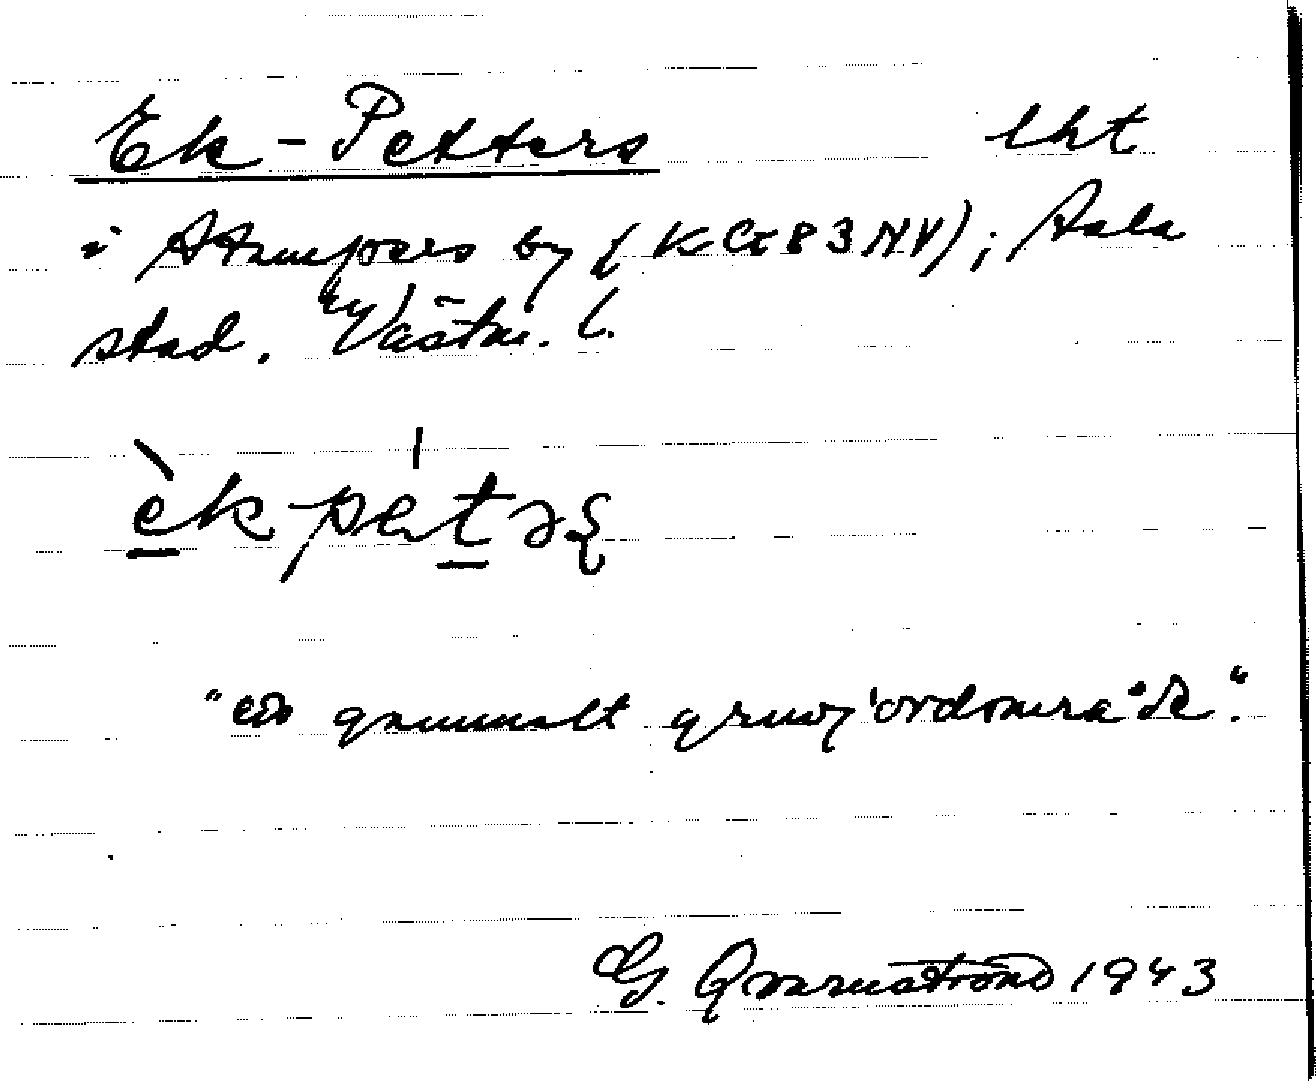 Ek-Petters lht
i Stampers by (K Ct 83 NV); Sala
stad. Västm. l.
èk pètəʂ
"ett gammalt gruvjordområde".
G. Qvarnström 1943